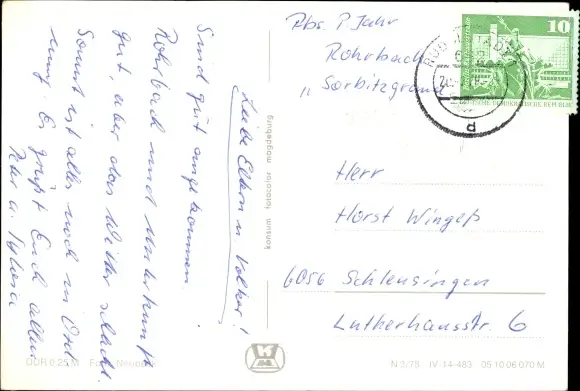 Liebe Eltern u. Volker!
Sind gut angekommen.
Rohrbach und Unterkunft
gut, aber das Wetter schlecht.
Sonst ist alles noch in Ord
nung. Es grüßt Euch allen
u. Sylvia
Abs. P. Jahr
Rohrbach
"Sorbitzgrund
10
DEUTSCHE DEMOKRATISCHE REPUBLIK
Herr
Horst Wingeß
6056 Schleusingen
Lutherhausstr. 6
konsum fotocolor magdeburg
DDR 0,25 M
N 2/78 IV-14-483 05 10 06 070 M